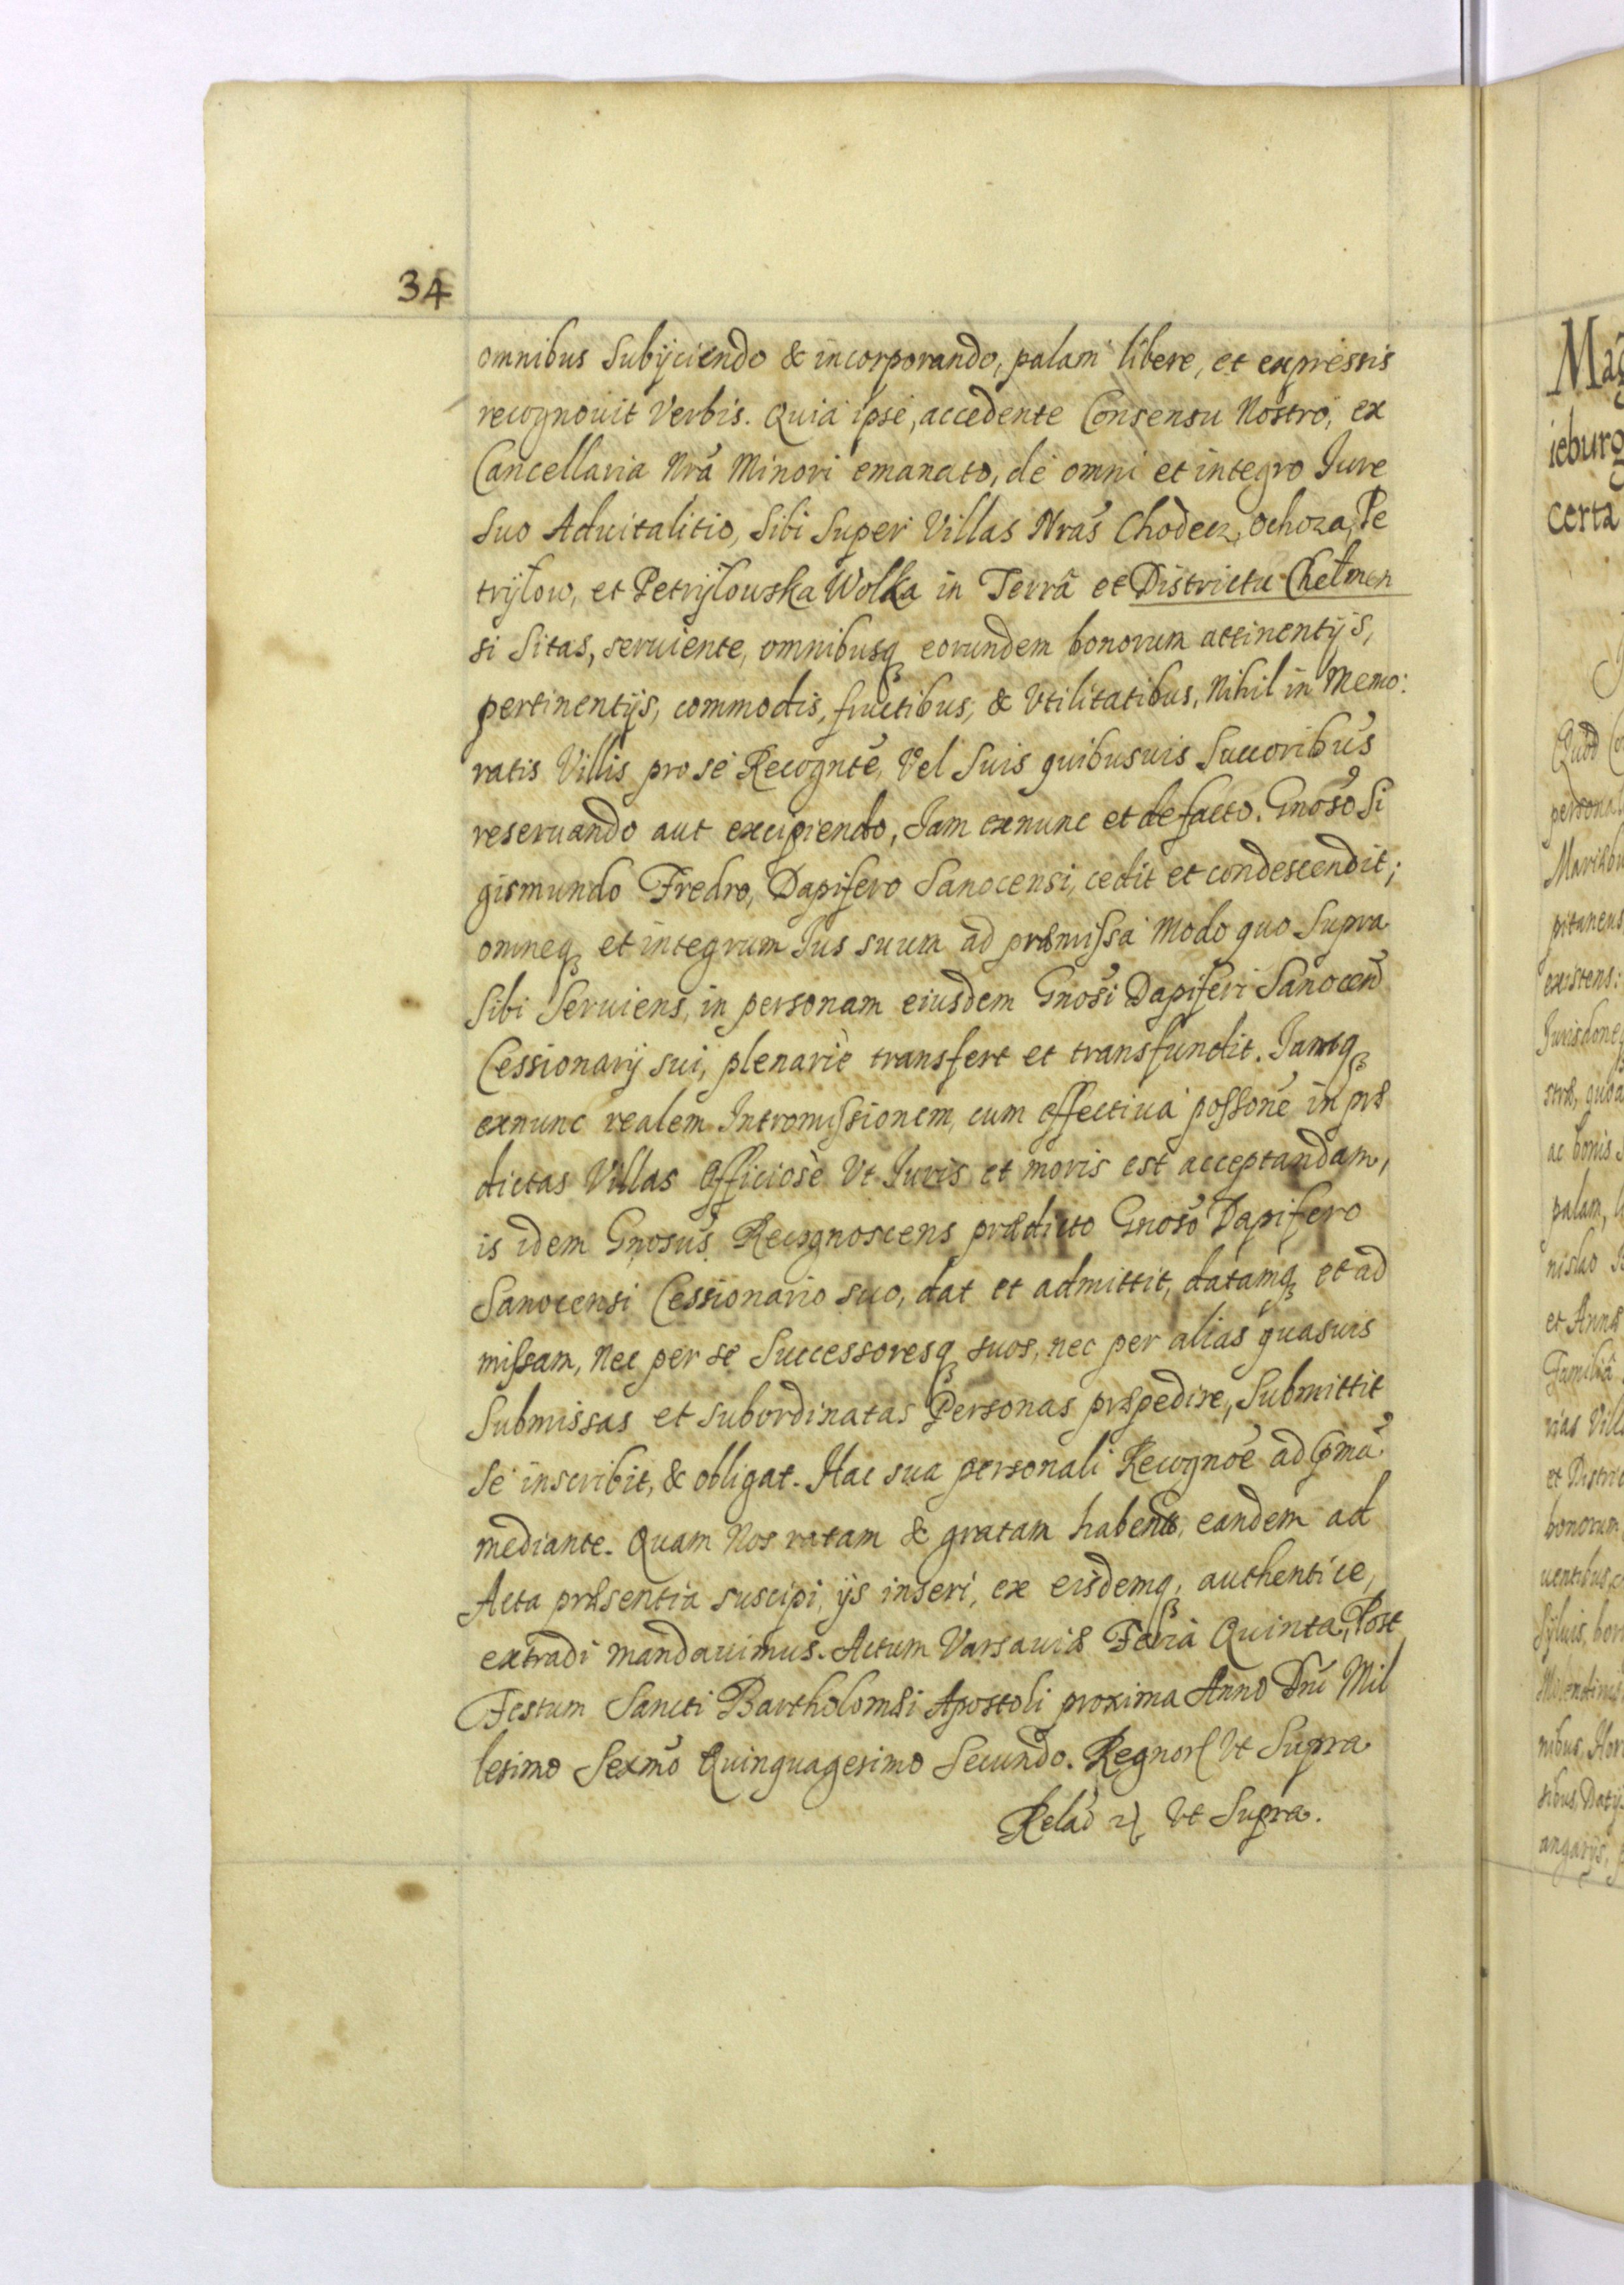 34
omnibus Subijciendo & incorporando, palam libere, et expressis
recognovit Verbis. Quia ipse, accedente Consensu Nostro, ex
Cancellaria Nra Minori emanato, de omni et integro Iure
Suo Aduitalitio, Sibi Super Villas Nras Chodecz, Ochoza, Pe
tryłow, et Petryłowska Wolka in Terrâ et Districtu Chełmen
si Sitas, seruiente, omnibusq eorundem bonorum attinentijs,
pertinentijs, commodis, fructibus, & Vtilitatibus, Nihil in Memo:
ratis Villis pro se Recognte, Vel Suis quibusuis Succoribus
reseruando aut excipiendo, Iam exnunc et de facto. Gnoso Si
gismundo Fredro, Dapifero Sanocensi, cedit et condescendit;
omneq et integrum Ius suum ad præmissa Modo quo Supra
Sibi Seruiens, in personam eiusdem Gnosi Dapiferi Sanocen
Cessionarij sui, plenariè transfert et transfundit. Iamq
exnunc realem Intromissionem, cum effectiua possone in præ
dictas Villas Officiosè Vt Iuris et moris est acceptandam,
is idem Gnosus Recognoscens prædicto Gnoso Dapifero
Sanocensi Cessionario suo, dat et admittit, datamq et ad
missam, Nec per se Successoresq suos, nec per alias quasuis
Submissas et subordinatas Personas præpedire, Submittit
Se inscribit, & obligat. Hac sua personali Recognoe ad
mediante. Quam Nos ratam & gratam habentes, eandem ad
Acta præsentia suscipi, ijs inseri, ex eisdemq, authentice,
extradi mandauimus. Actum Varsauiæ Feria Quinta, Post
Festum Sancti Bartholomæi Apostoli proxima Anno Dni Mil
lesimo Sexmo Quinquagesimo Secundo. Regnor Vt Supra
Relao Vt Supra.
Mag
ieburg
certa
Quod
personal
pitaneus
existens:
ac bonis
palam,
et Annæ
Familiâ
et Distric
bonorum
angarijs,